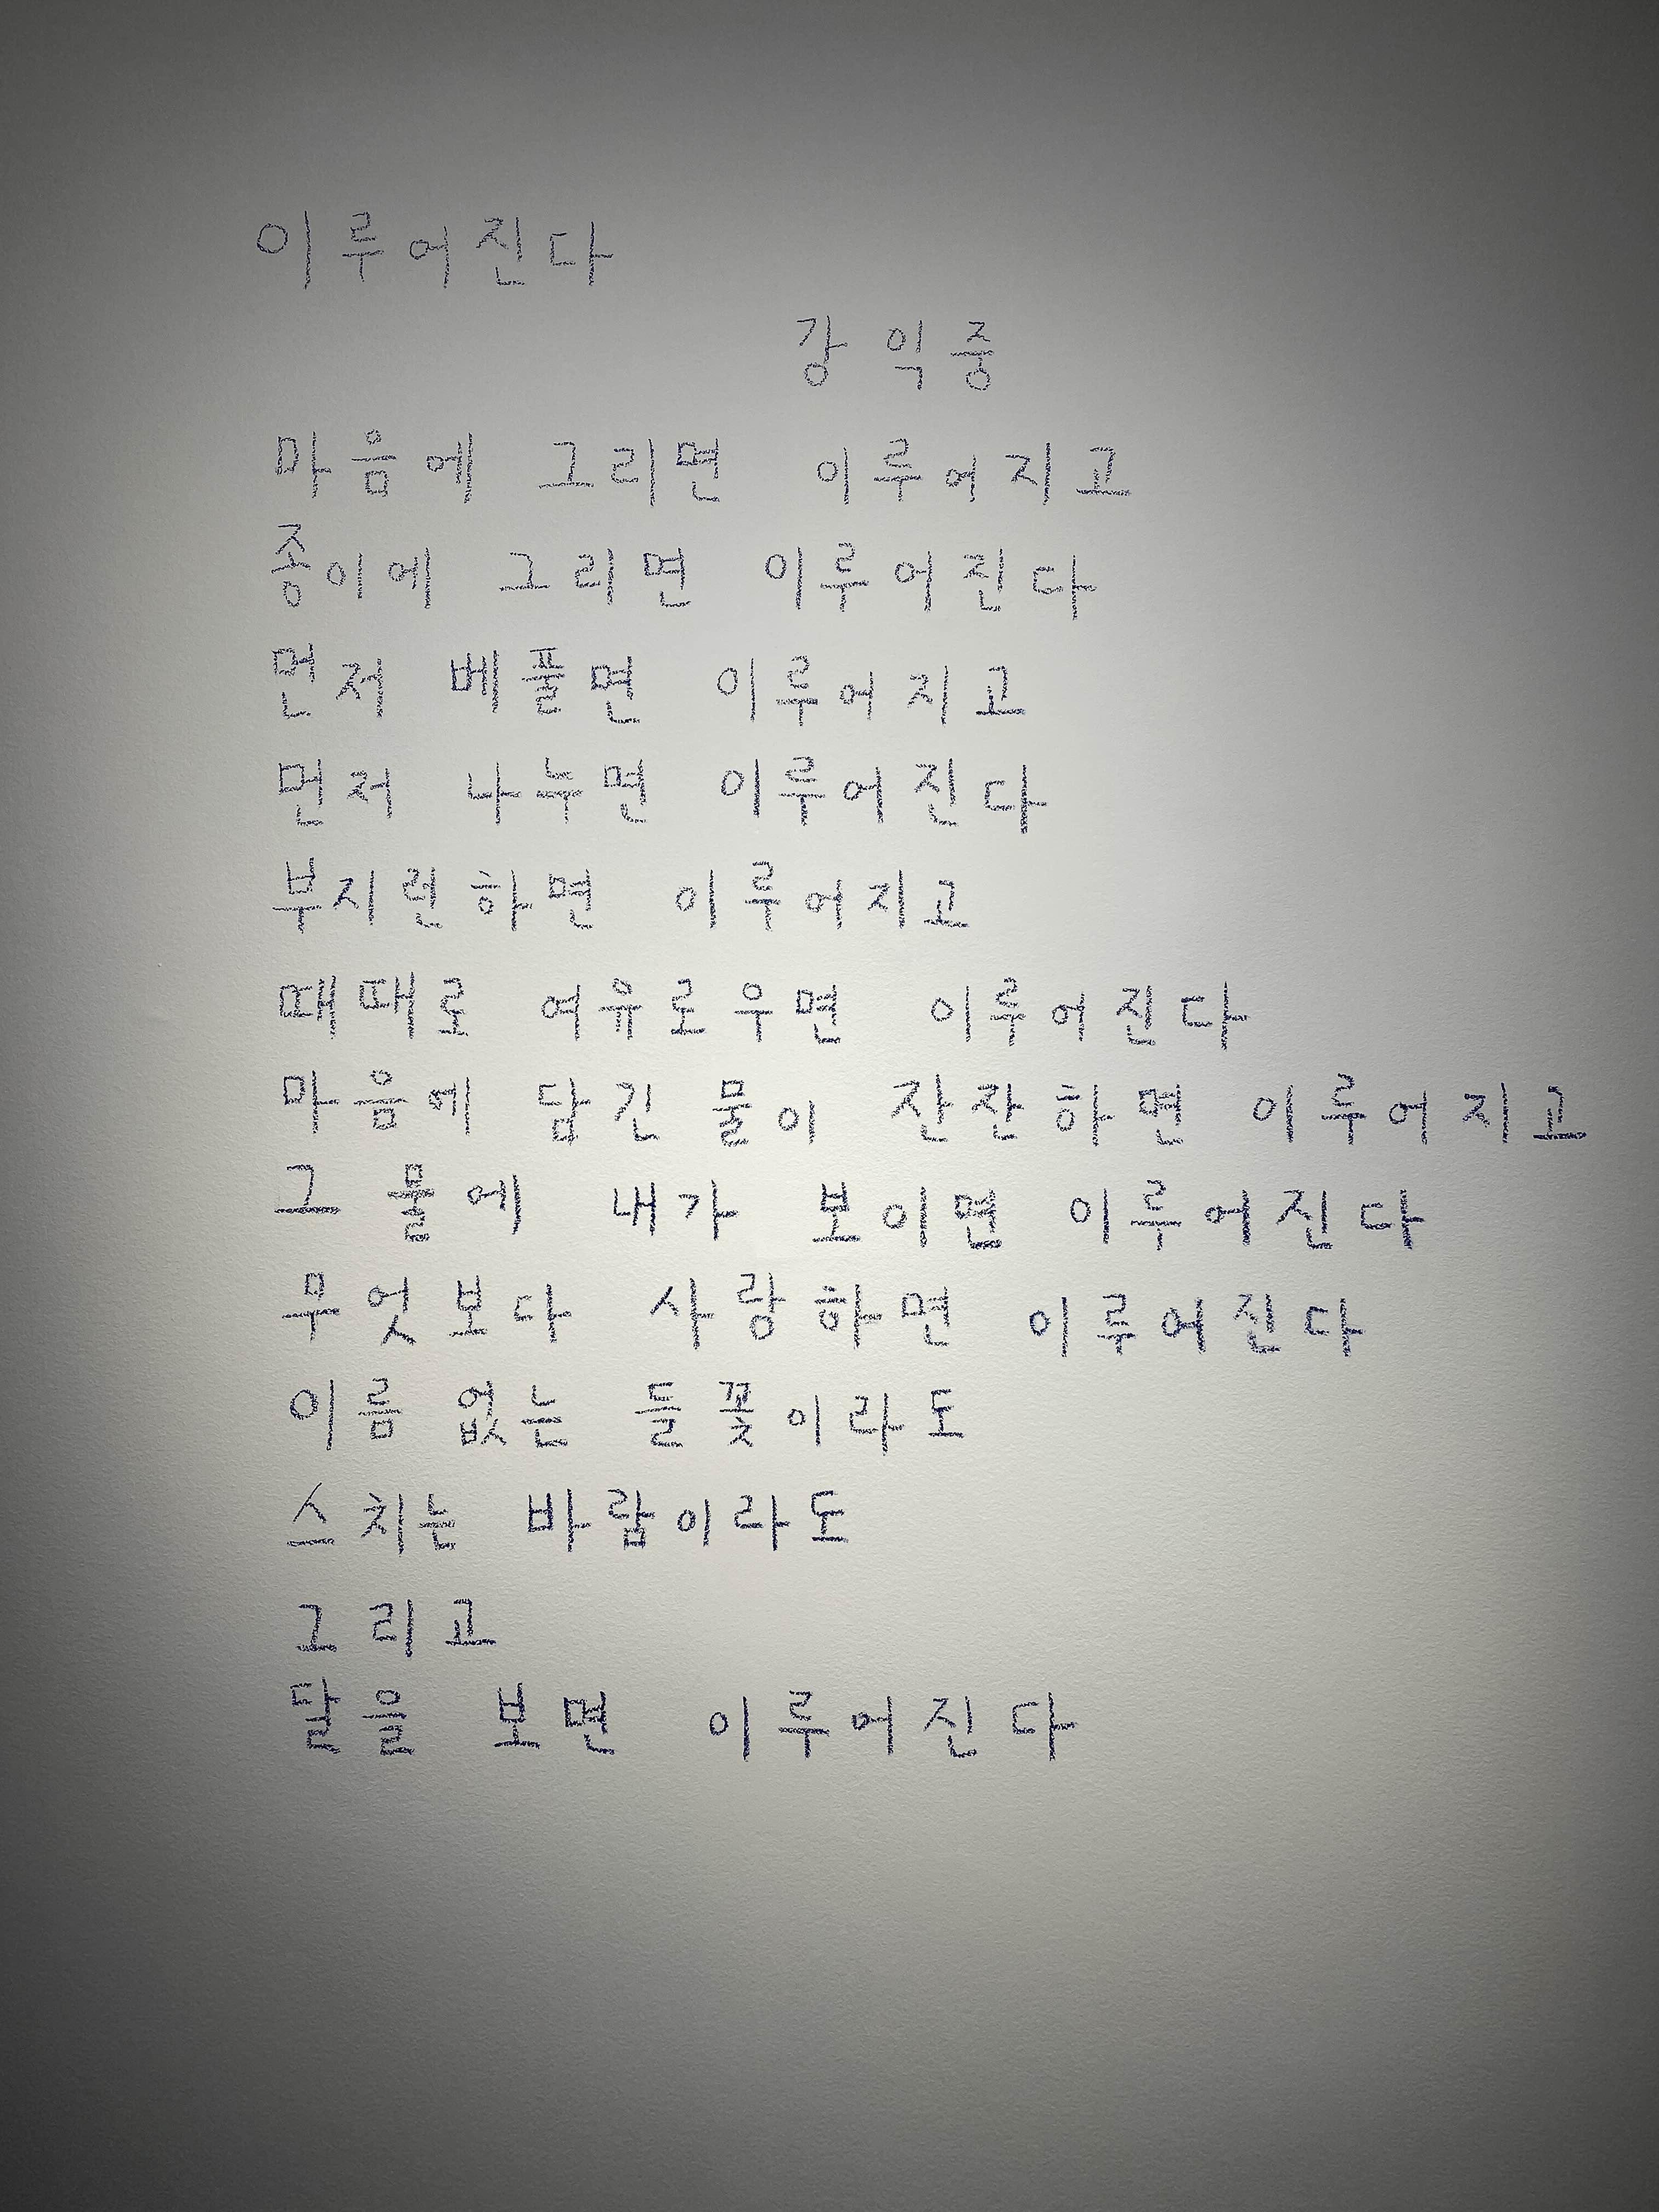 이루어진다
강익중
마음에 그리면 이루어지고
종이에 그리면 이루어진다
먼저 베풀면 이루어지고
먼저 나누면 이루어진다
부지런하면 이루어지고
때때로 여유로우면 이루어진다
마음에 담긴 물이 잔잔하면 이루어지고
그 물에 내가 보이면 이루어진다
무엇보다 사랑하면 이루어진다
이름 없는 들꽃이라도
스치는 바람이라도
그리고
달을 보면 이루어진다